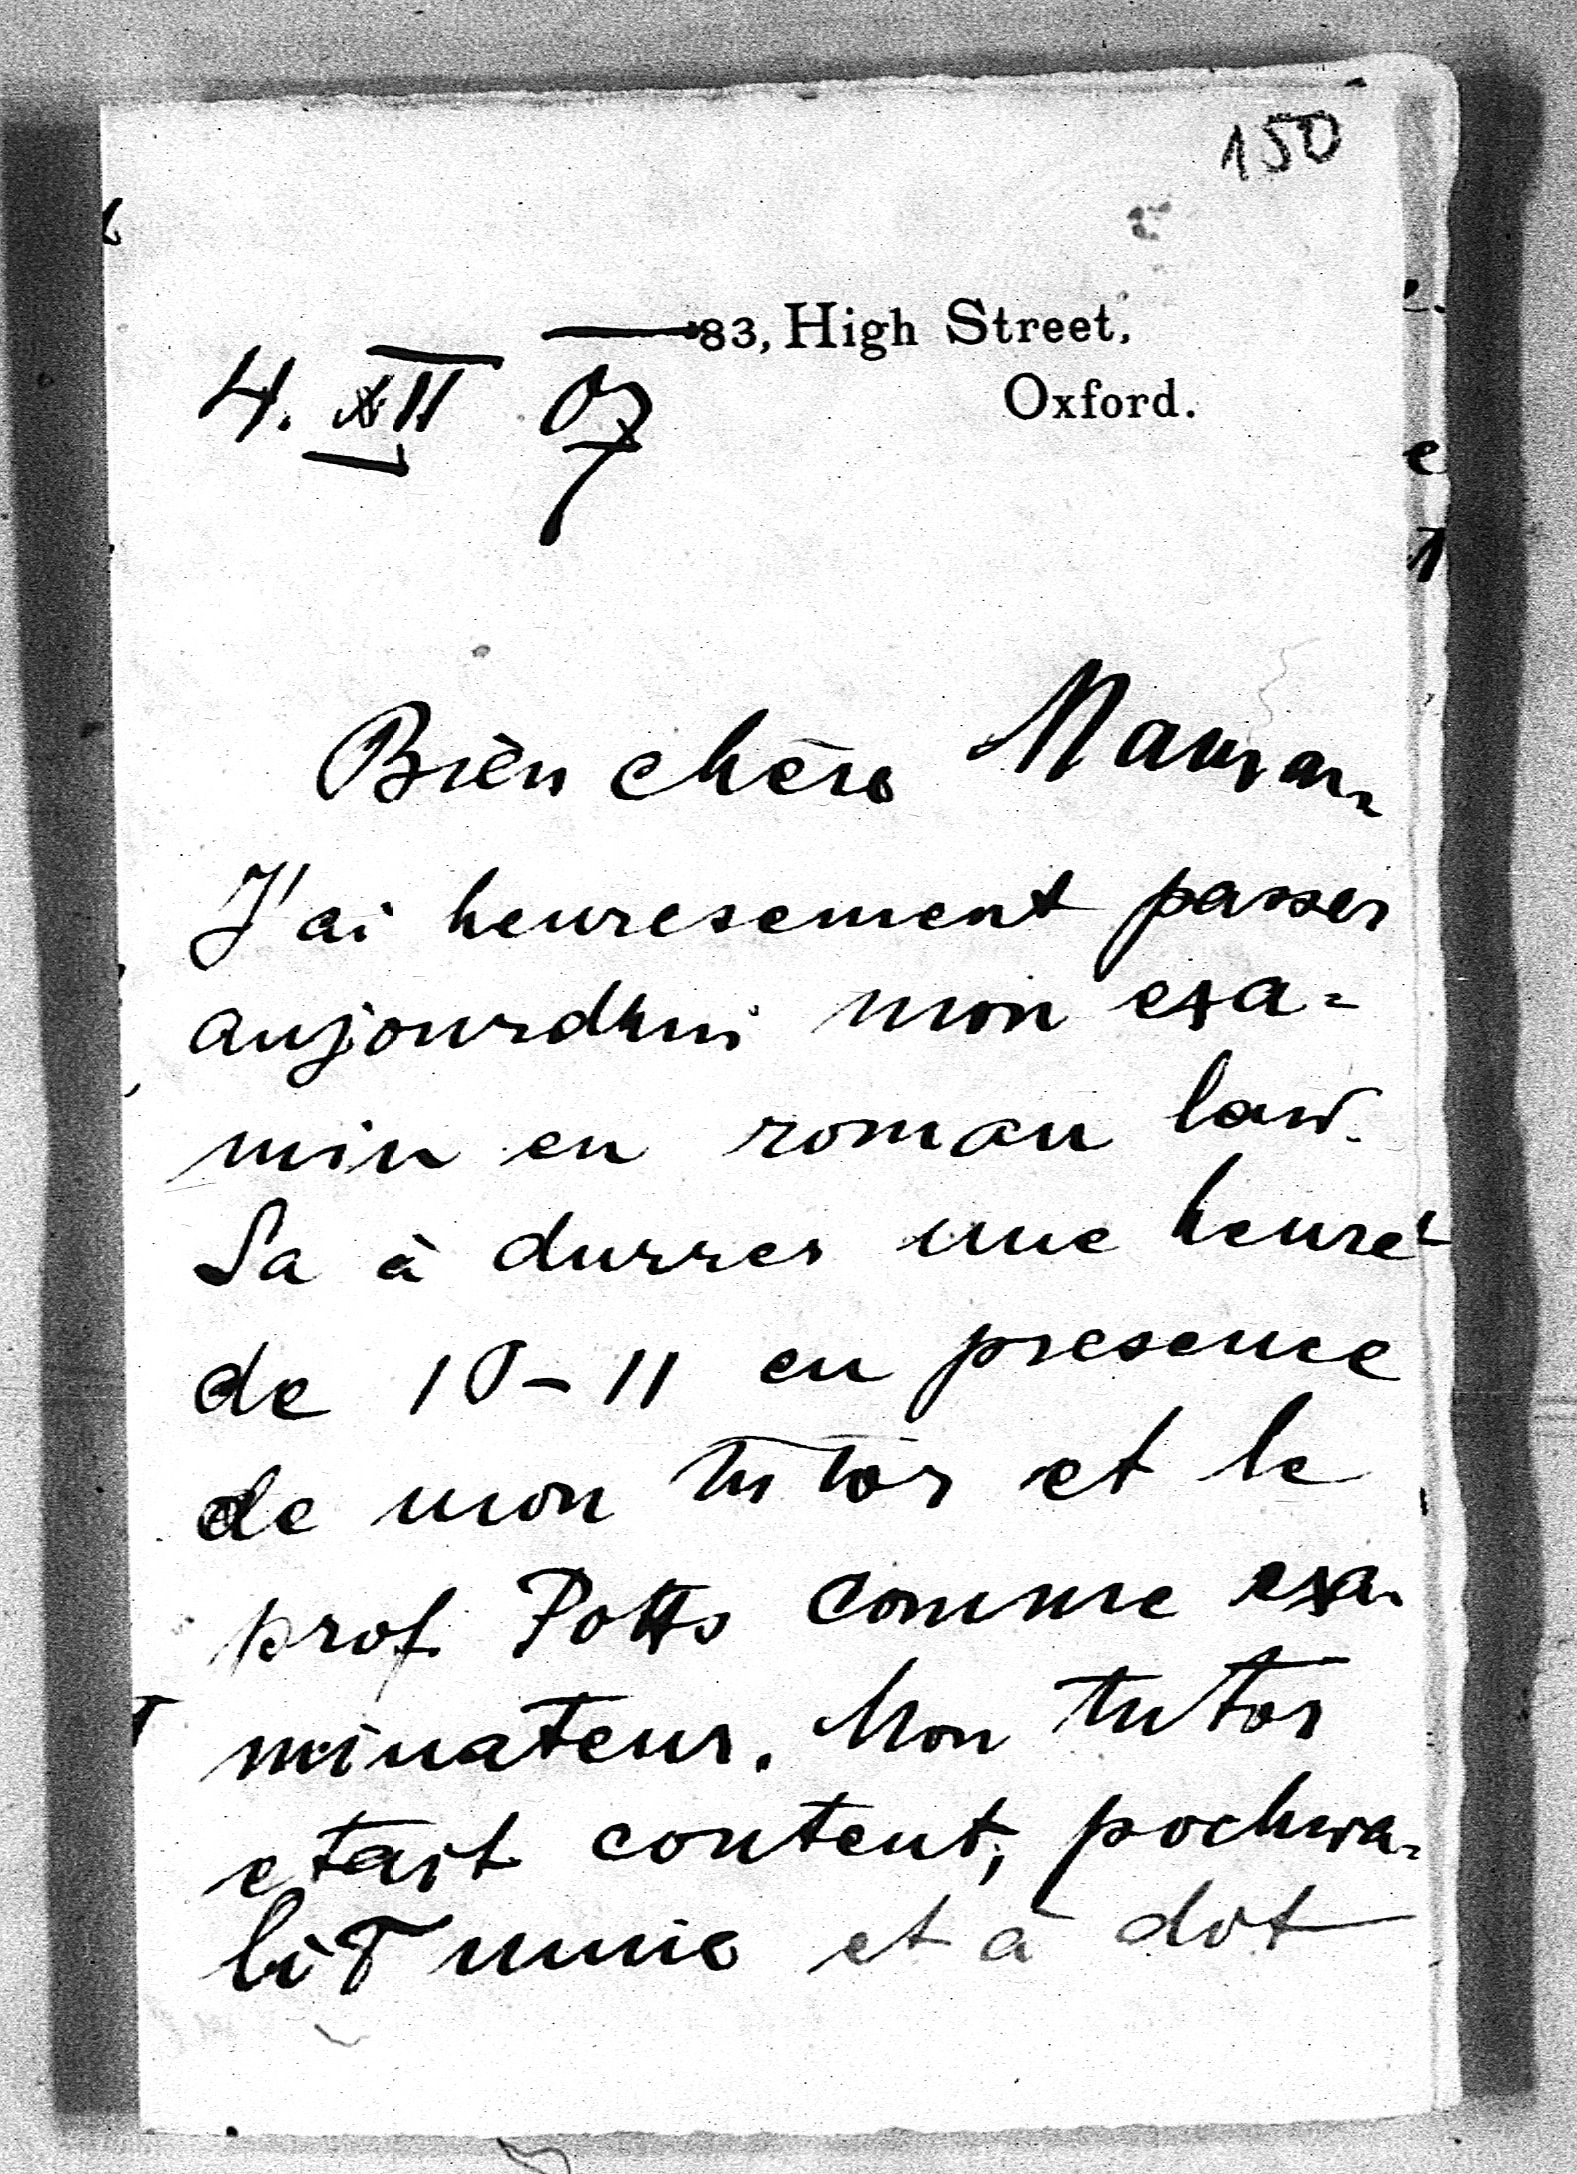 150
83, High Street,
Oxford.
4. XII 07
Bièn chère Maman
J'ai heuresement passer
aujourdhui mon exa=
min en roman law.
Sa à durrer une heure
de 10-11 en presence
de mon tutor et le
prof. Potts comme exa-
minateur. Mon tutor
etait content, pochwa=
lił mnie et à dot